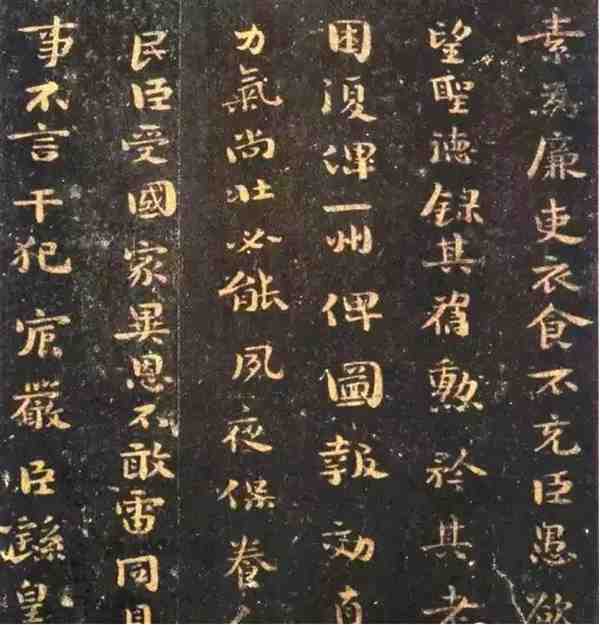 素為廉吏衣食不充臣愚欲
望聖德錄其舊勲矜其老
困復俾一州俾圖報効直
力氣尚壯必能夙夜保養人
民臣受國家異恩不敢雷同見
事不言干犯宸嚴臣繇皇